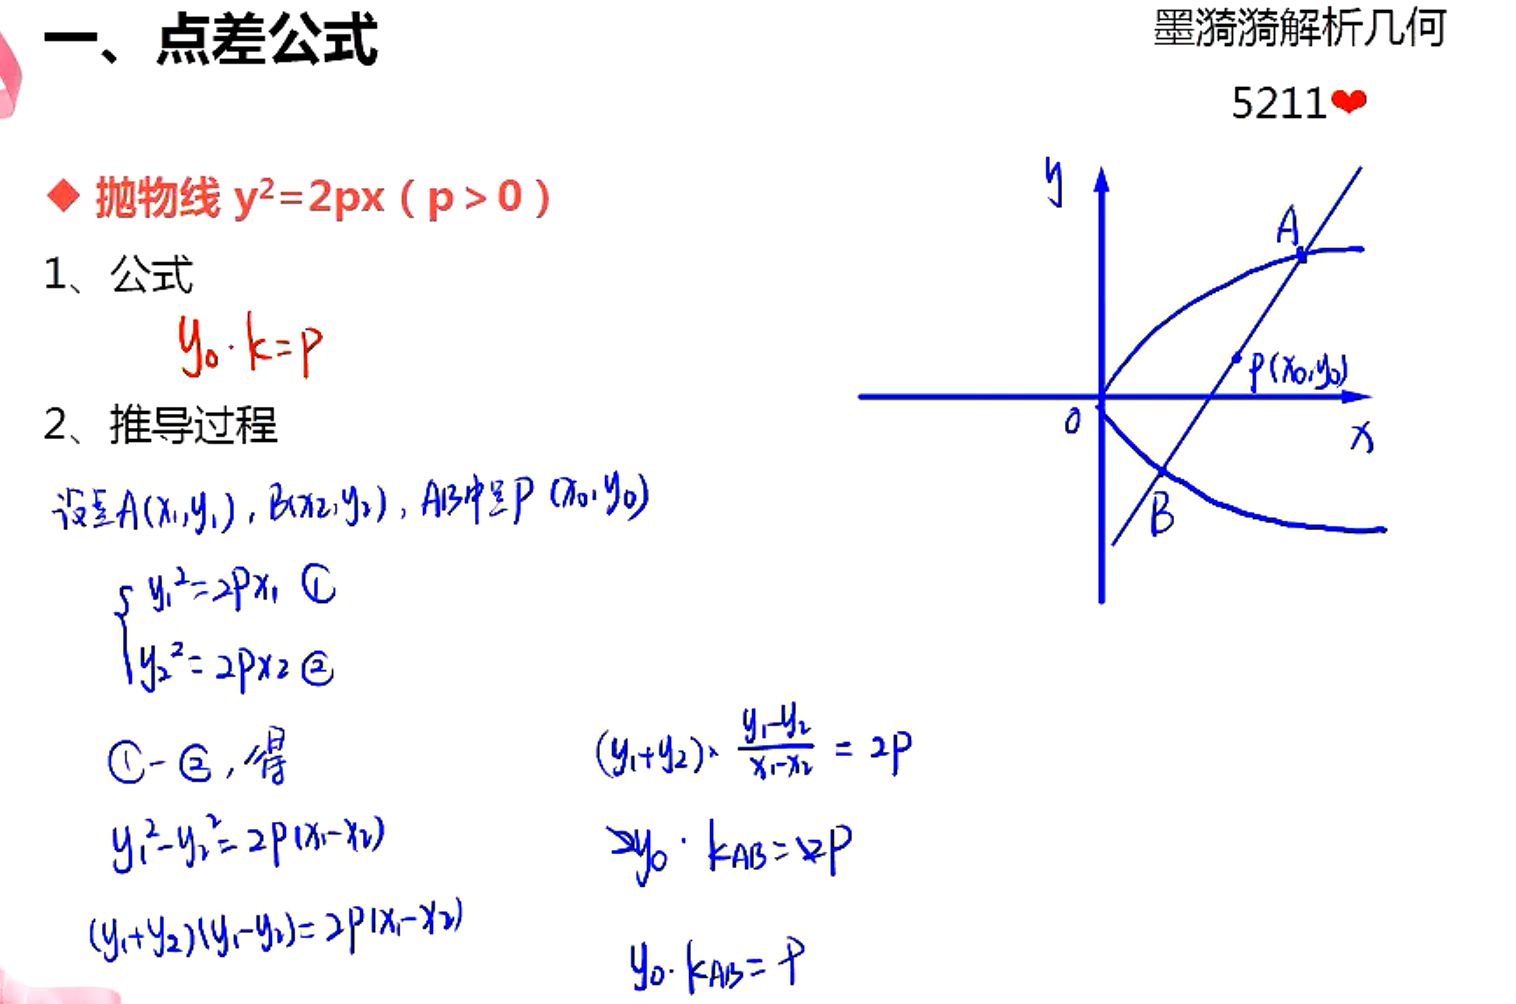 一、点差公式
墨漪漪解析几何
5211❤
◆ 抛物线 y²=2px（p＞0）
1、公式
y₀·k=p
2、推导过程
设点A(x₁,y₁), B(x₂,y₂), AB中点P (x₀,y₀)
{ y₁²=2px₁ ①
y₂²=2px₂ ②
①-②,得
y₁²-y₂²=2p(x₁-x₂)
(y₁+y₂)(y₁-y₂)=2p(x₁-x₂)
(y₁+y₂)· (y₁-y₂)/(x₁-x₂) = 2p
2y₀·k_AB=2p
y₀·k_AB=p
y
A
P(x₀,y₀)
O
x
B